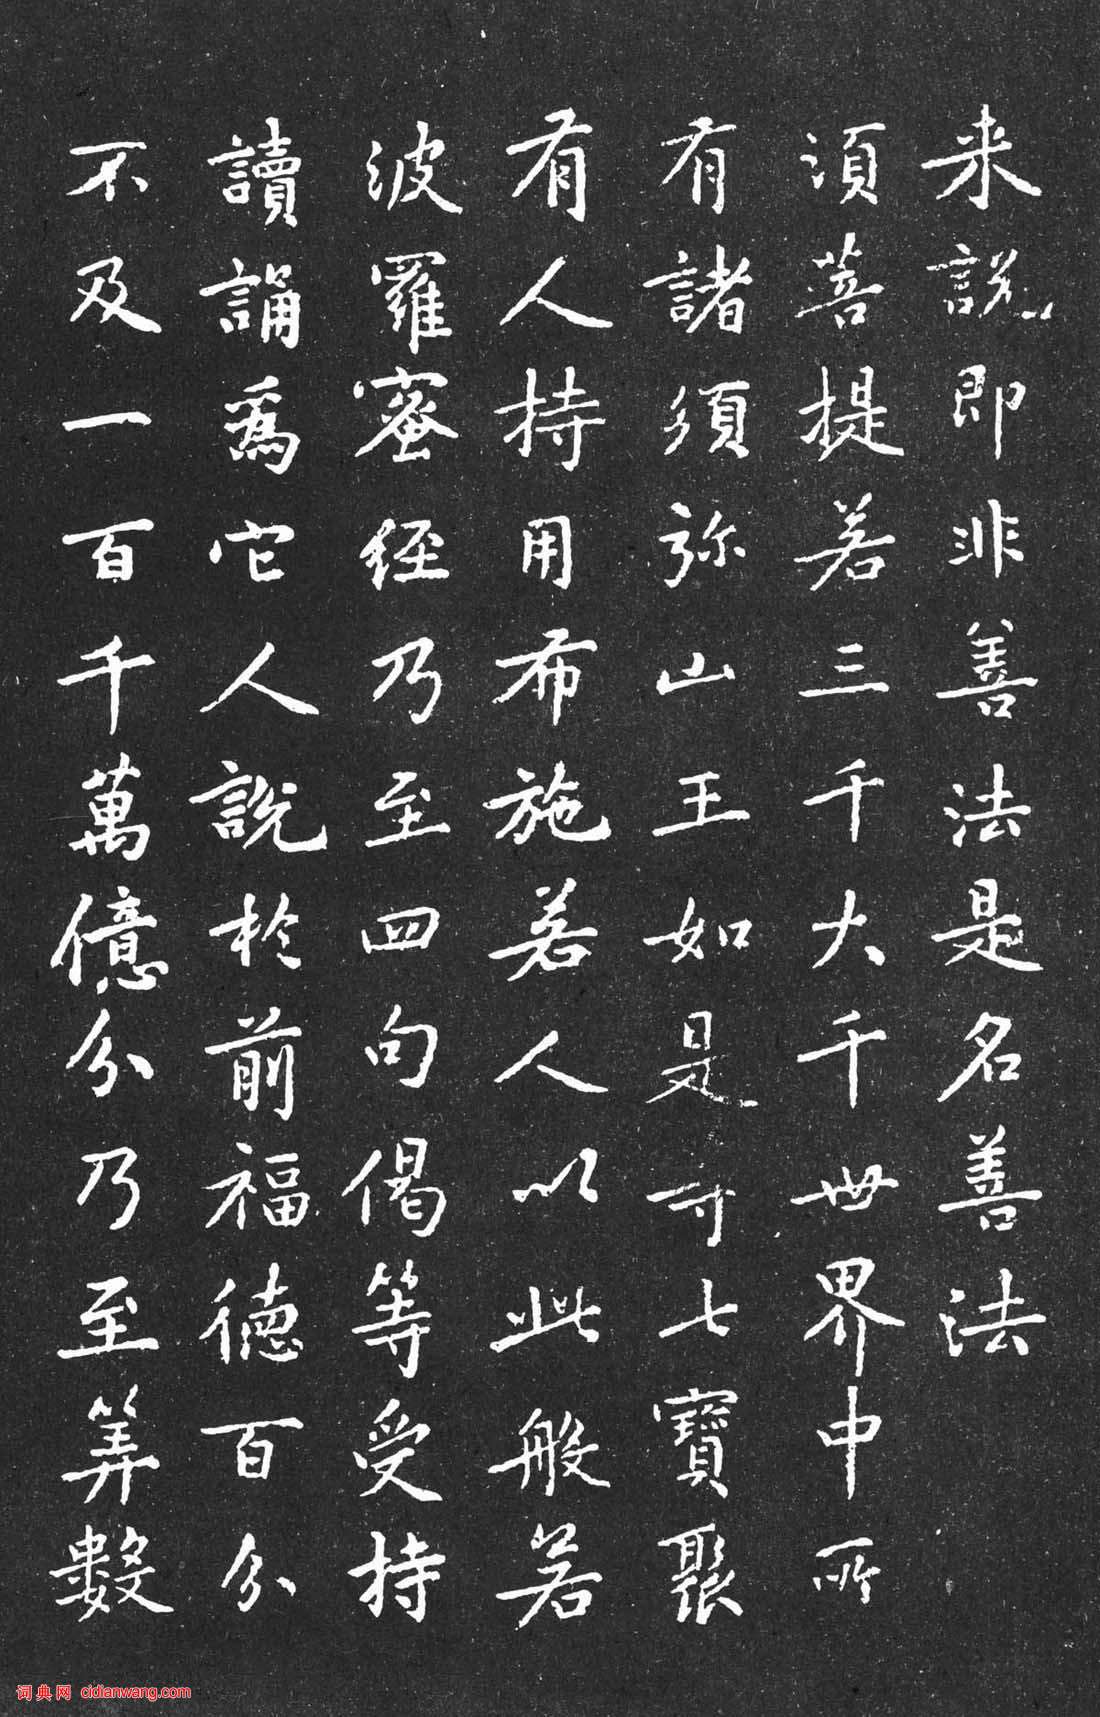 来說即非善法是名善法
須菩提若三千大千世界中所
有諸須弥山王如是等七寶聚
有人持用布施若人以此般若
波羅蜜経乃至四句偈等受持
讀誦爲它人說於前福德百分
不及一百千萬億分乃至筭數
词典网 cidianwang.com